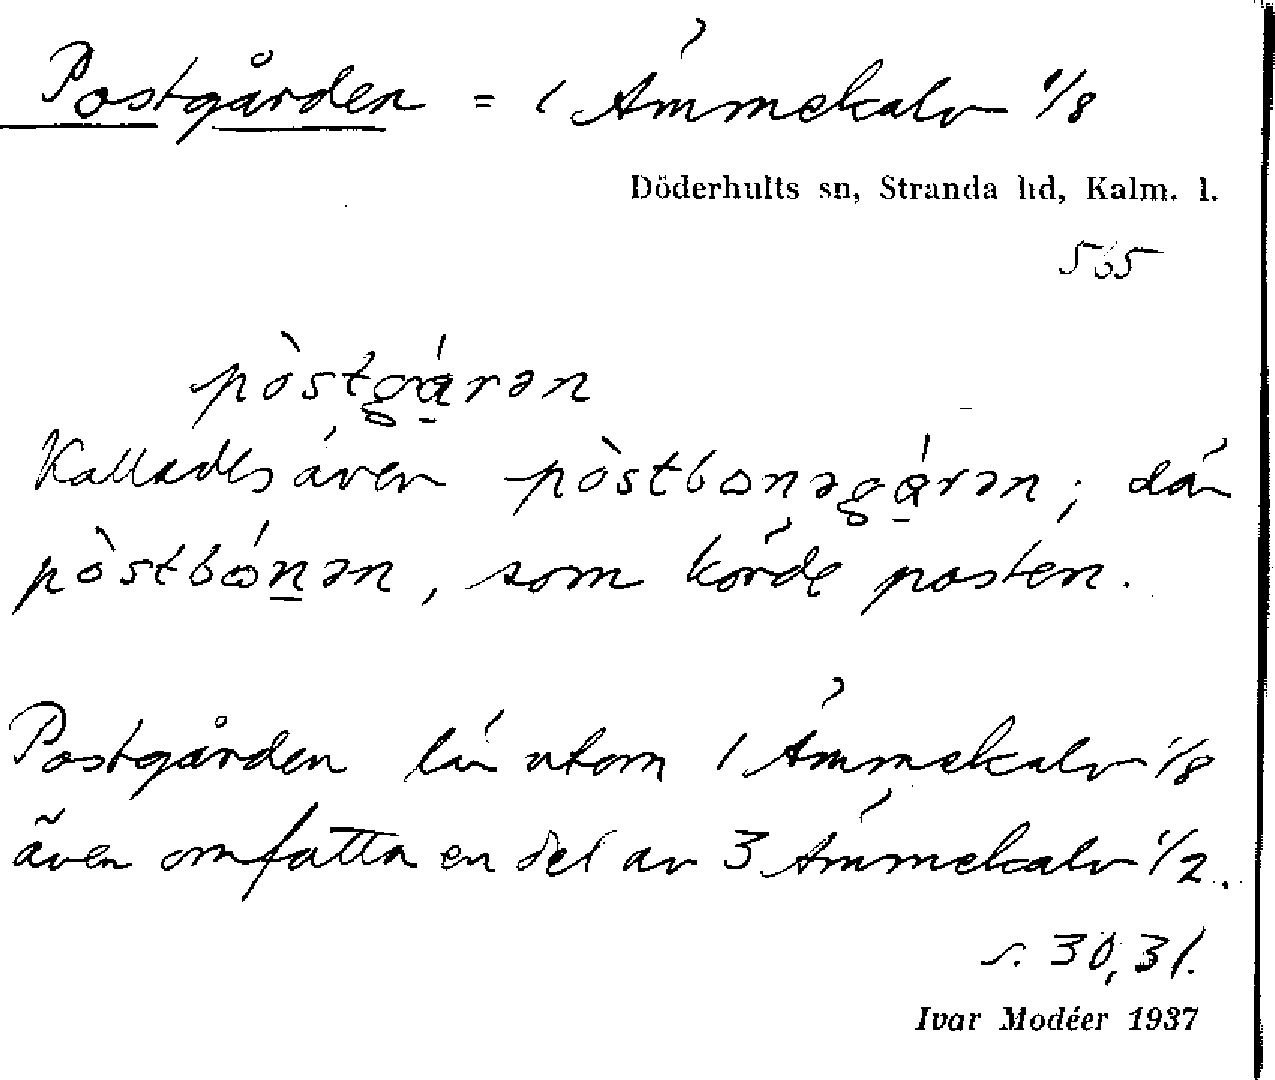 Postgården = 1 Ämmekalv 1/8
Döderhults sn, Stranda hd, Kalm. l.
565
pòstgárən
Kallades även pòstbonəgárən; där
pòstbónən, som körde posten.
Postgården lär utom 1 Ämmekalv 1/8
även omfatta en del av 3 Ämmekalv 1/2.
s. 30, 31.
Ivar Modéer 1937